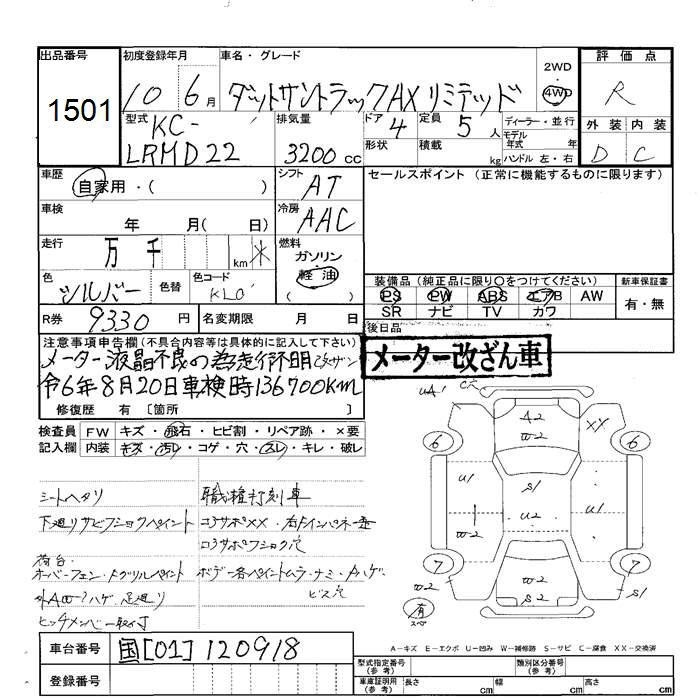 出品番号 初度登録年月 車名・グレード 2WD 評価点
1501 10 6月 ダットサントラックAXリミテッド 4WD R
型式 排気量 ドア 定員 ディーラー・並行 外装 内装
KC- 4 5人 モデル年式 年
LRMD22 3200cc 形状 積載 kg ハンドル 左・右 D C
車歴 シフト セールスポイント(正常に機能するものに限ります)
自家用・( ) AT
車検 冷房
年 月( 日) AAC
走行 燃料
万 千 km ガソリン
軽油
色 色替 色コード 装備品(純正品に限り○をつけてください) 新車保証書
シルバー KL0 PS PW ABS エアB AW 有・無
SR ナビ TV カワ
R券 9330円 名変期限 月 日 後日品
注意事項申告欄(不具合内容等は具体的に記入して下さい)
メーター液晶不良の為走行不明 改ザン メーター改ざん車
令6年8月20日車検時136700km
修復歴 有〔箇所 〕
検査員 FW キズ・飛石・ヒビ割・リペア跡・×要
記入欄 内装 キズ・汚レ・コゲ・穴・スレ・キレ・破レ
シートヘタリ 職権打刻車
下廻リサビフショクペイント コアサポXX・
コアサポフショク穴
荷台
ボデー各ペイントムラ・ナミ・
ビス穴
ヒッチメンバー取付
UA1 C穴
A2 XX
W2
6 6
U1 S1
1 U2 U1
W2
7 7
W2 W2 W2
S2 S1
有
スペ
A-キズ E-エクボ U-凹み W-補修跡 S-サビ C-腐食 XX-交換済
車台番号 国[01]120918
登録番号
型式指定番号(参考) 類別区分番号(参考)
車庫証明用(参考) 長さ cm 幅 cm 高さ cm